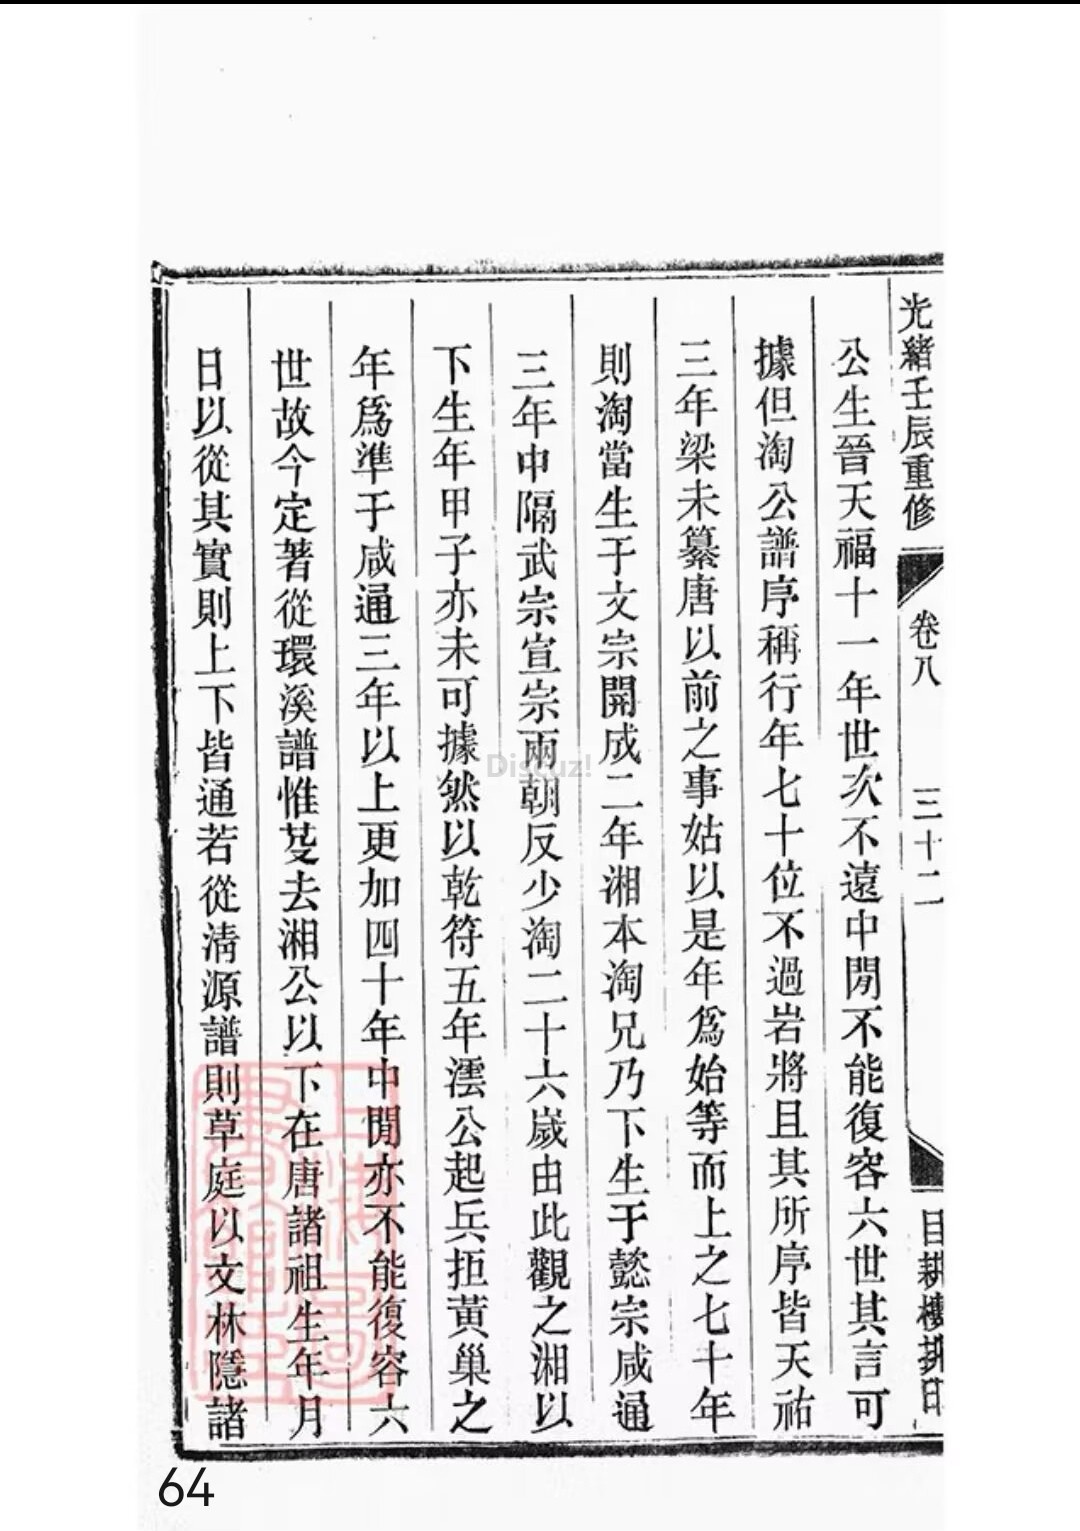 光緒壬辰重修
卷八
三十二
目耕樓
公生晉天福十一年世次不遠中閒不能復容六世其言可
據但淘公譜序稱行年七十位不過岩將且其所序皆天祐
三年梁未纂唐以前之事姑以是年爲始等而上之七十年
則淘當生于文宗開成二年湘本淘兄乃下生于懿宗咸通
三年中隔武宗宣宗兩朝反少淘二十六歲由此觀之湘以
下生年甲子亦未可據然以乾符五年澐公起兵拒黃巢之
年爲準于咸通三年以上更加四十年中閒亦不能復容六
世故今定著從環溪譜惟芟去湘公以下在唐諸祖生年月
日以從其實則上下皆通若從淸源譜則草庭以文林隱諸
Discuz!
64